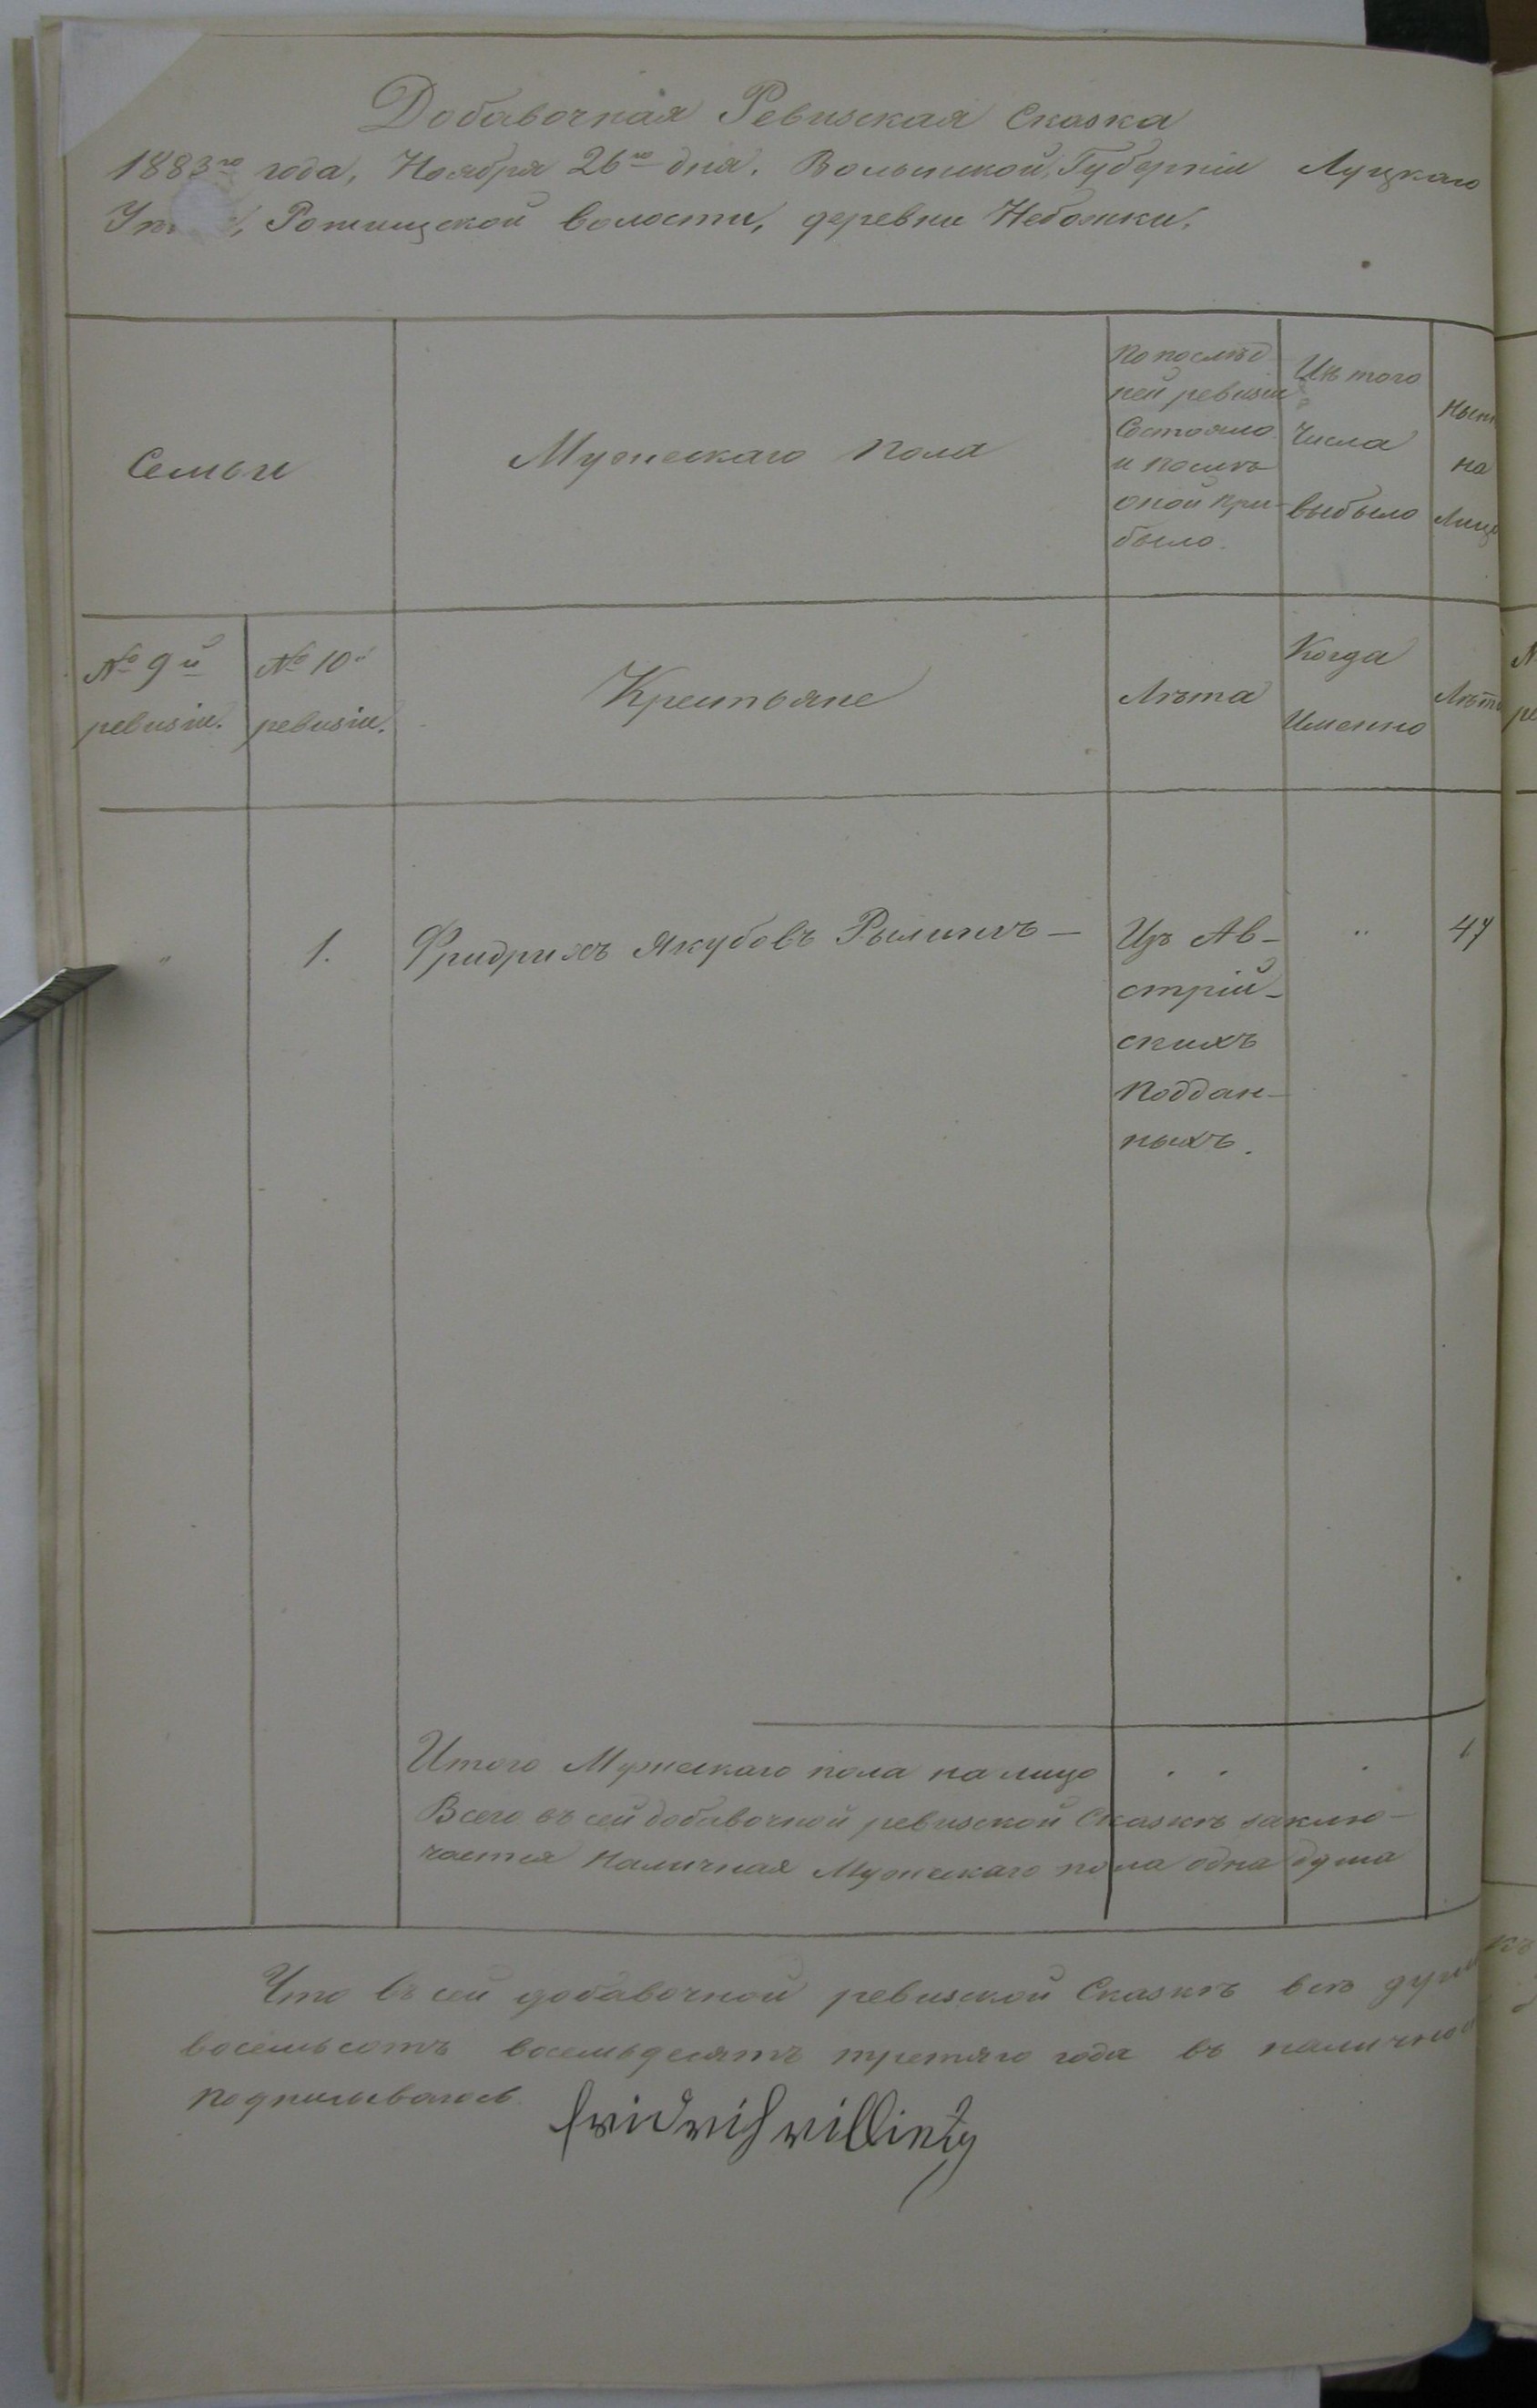 Добавочная Ревизская Сказка
1883го года, Ноября 26го дня. Волынской Губерніи Луцкаго
Рожищской волости, деревни Небожки.
Семьи
Мужескаго пола
По послѣд-
ней ревизіи
Состояло
и послѣ
оной при-
было.
Изъ того
Числа
выбыло
на
№ 9й
ревизіи.
№ 10й
ревизіи.
Крестьяне
Лѣта
Когда
Именно
Лѣта
"
1.
Фридрихъ Якубовъ Рылингъ —
Изъ Ав-
стрій-
скихъ
Поддан-
ныхъ.
"
47
Итого Мужескаго пола на лицо . . . 1
Всего въ сей добавочной ревизской Сказкѣ заклю-
чается Наличная Мужескаго пола одна душа
Что въ сей добавочной ревизской Сказкѣ всѣ
восемьсотъ восемьдесятъ третяго года въ
подписываюсь